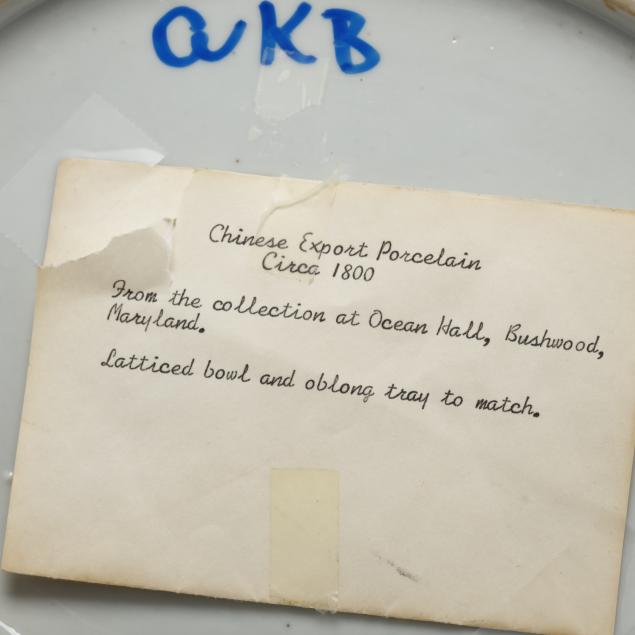 aKB
Chinese Export Porcelain
Circa 1800
From the collection at Ocean Hall, Bushwood,
Maryland.
Latticed bowl and oblong tray to match.